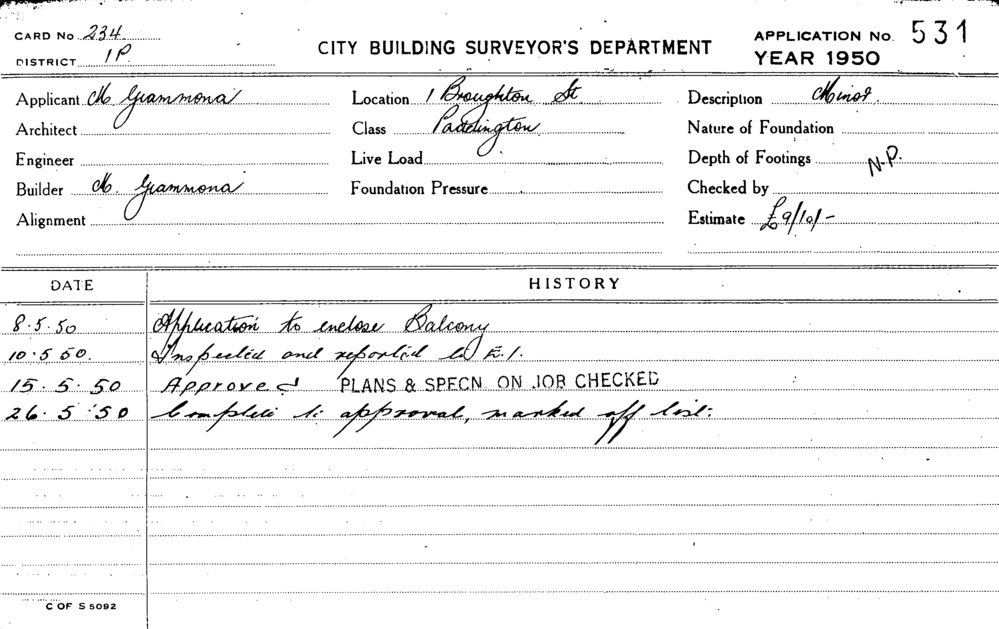 CARD No. 234
DISTRICT 1P.
CITY BUILDING SURVEYOR'S DEPARTMENT
APPLICATION No. 531
YEAR 1950
Applicant M Giammona
Location 1 Broughton St
Description Minor.
Architect
Class Paddington
Nature of Foundation
Engineer
Live Load
Depth of Footings N.P.
Builder M. Giammona
Foundation Pressure
Checked by
Alignment
Estimate £9/10/-
DATE HISTORY
8.5.50 Application to enclose Balcony
10.5.50. Inspected and reported to E.I.
15.5.50 Approved PLANS & SPECN. ON JOB CHECKED
26.5.50 Complete to approval, marked off list.
C OF S 5092